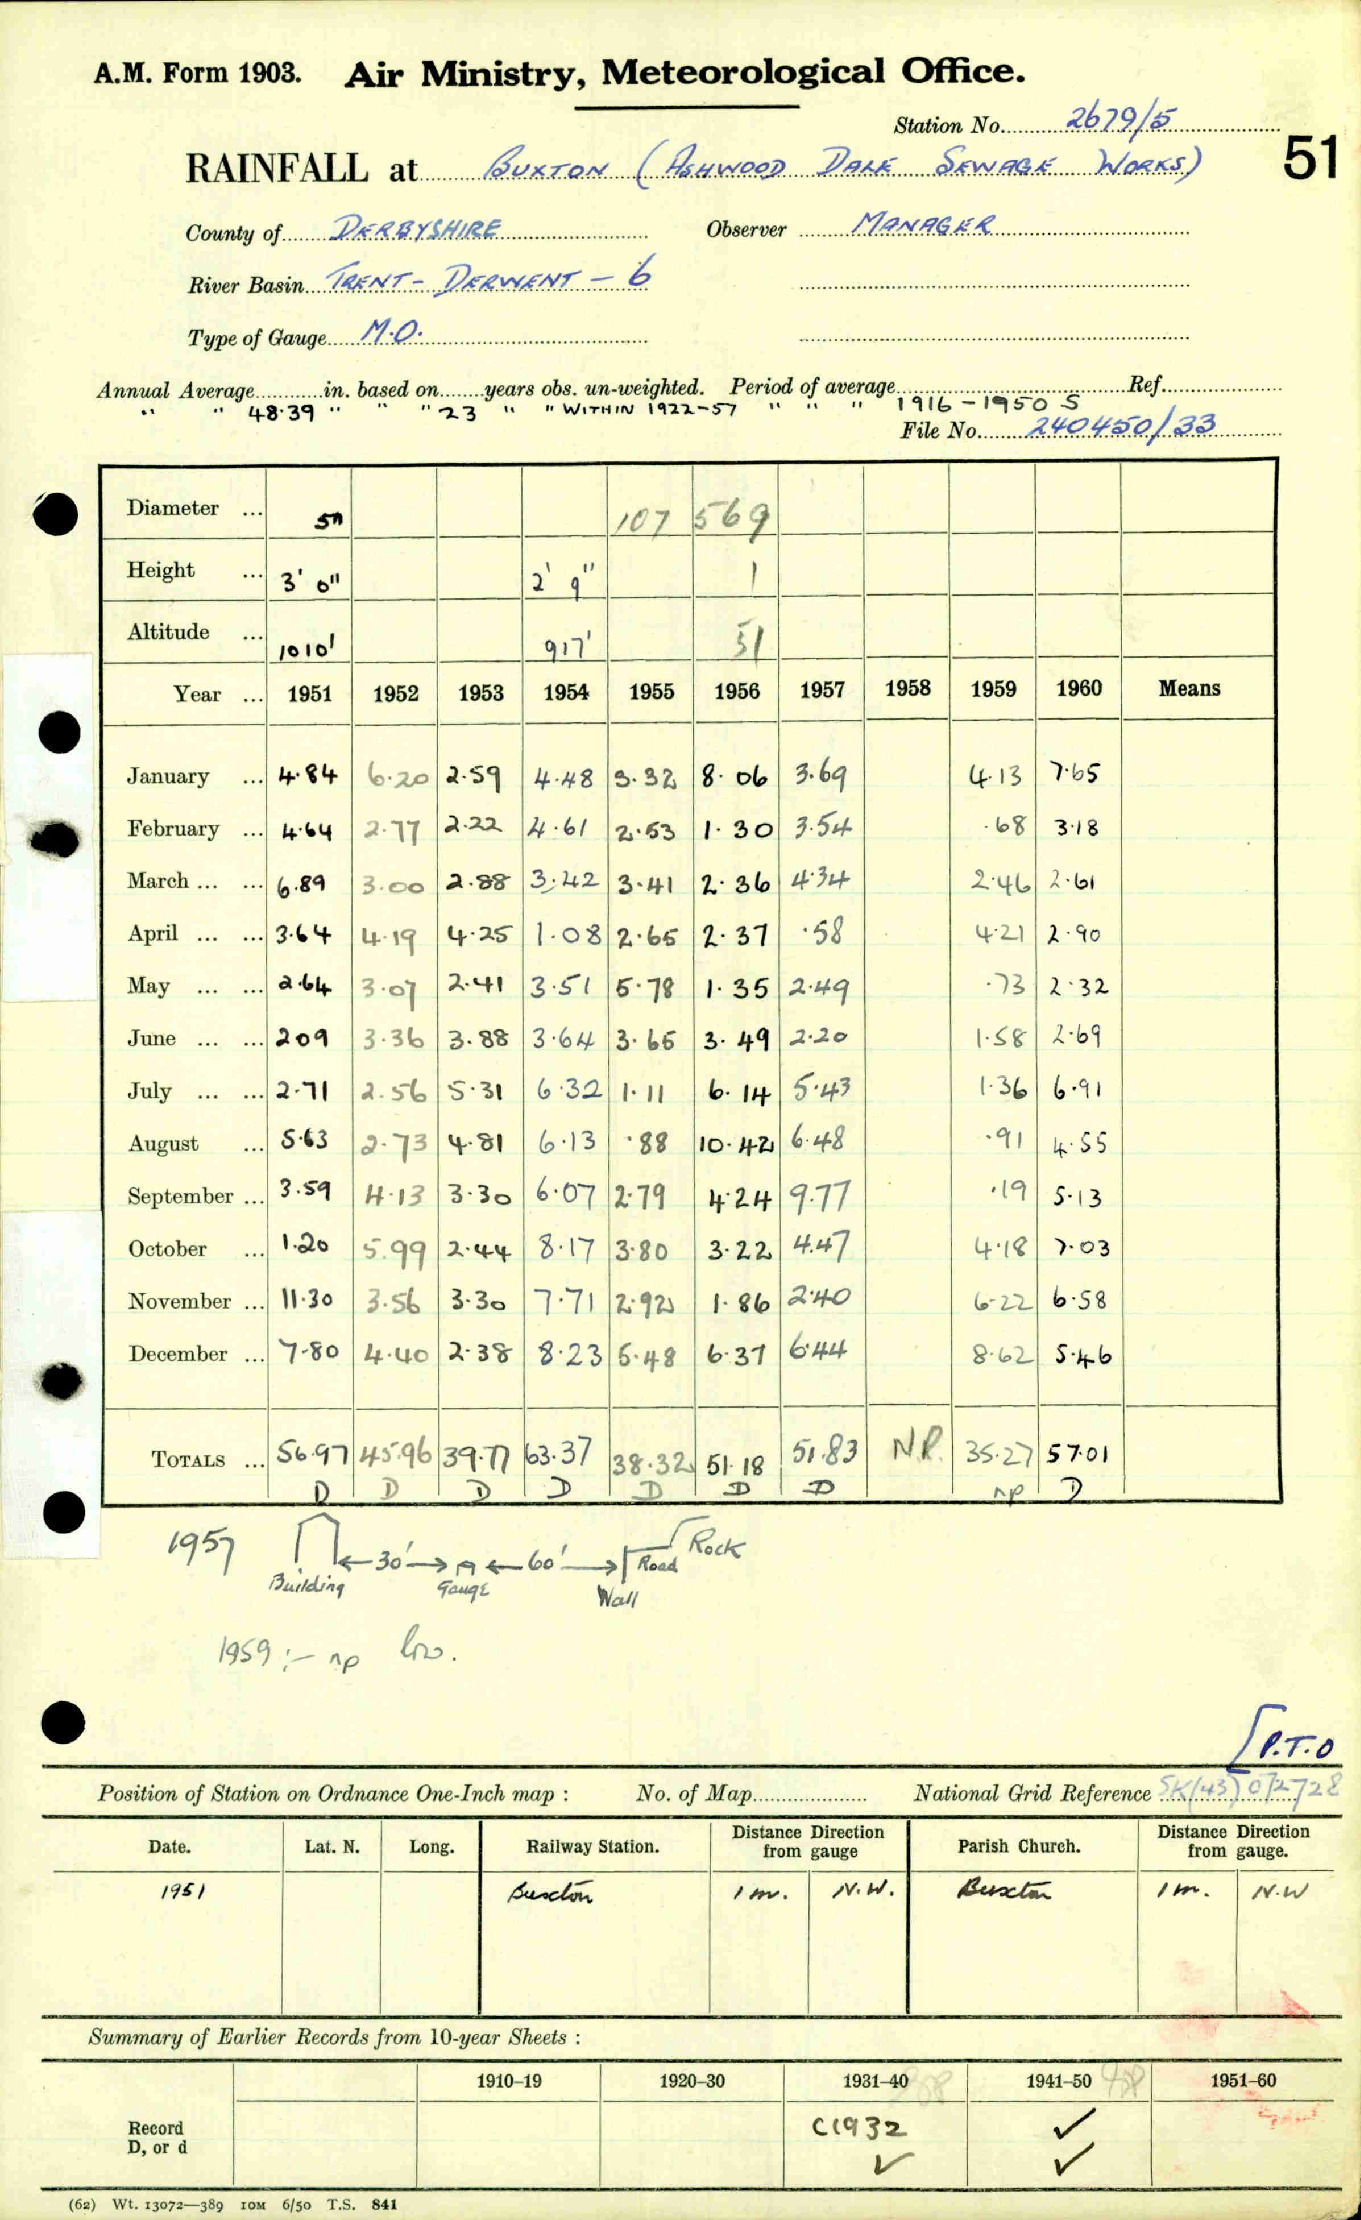 A.M. Form 1903. Air Ministry, Meteorological Office.
Station No. 2679/5
RAINFALL at BUXTON (ASHWOOD DALE SEWAGE WORKS) 51
County of DERBYSHIRE Observer MANAGER
River Basin TRENT - DERWENT - 6
Type of Gauge M.O.
Annual Average in. based on years obs. un-weighted. Period of average Ref.
" " 48.39 " " " 23 " " WITHIN 1922-57 " " " 1916-1950 S
File No. 240450/33
Diameter ... 5" 107 569
Height ... 3' 0" 2' 9" 1
Altitude ... 1010' 917' 51
Year ... 1951 1952 1953 1954 1955 1956 1957 1958 1959 1960 Means
January ... 4.84 6.20 2.59 4.48 3.32 8.06 3.69 4.13 7.65
February ... 4.64 2.77 2.22 4.61 2.53 1.30 3.54 .68 3.18
March ... ... 6.89 3.00 2.88 3.42 3.41 2.36 4.34 2.46 2.61
April ... ... 3.64 4.19 4.25 1.08 2.65 2.37 .58 4.21 2.90
May ... ... 2.64 3.07 2.41 3.51 5.78 1.35 2.49 .73 2.32
June ... ... 209 3.36 3.88 3.64 3.65 3.49 2.20 1.58 2.69
July ... ... 2.71 2.56 5.31 6.32 1.11 6.14 5.43 1.36 6.91
August ... 5.63 2.73 4.81 6.13 .88 10.42 6.48 .91 4.55
September ... 3.59 4.13 3.30 6.07 2.79 4.24 9.77 .19 5.13
October ... 1.20 5.99 2.44 8.17 3.80 3.22 4.47 4.18 7.03
November ... 11.30 3.56 3.30 7.71 2.92 1.86 2.40 6.22 6.58
December ... 7.80 4.40 2.38 8.23 5.48 6.37 6.44 8.62 5.46
TOTALS ... 56.97 45.96 39.77 63.37 38.32 51.18 51.83 N.P. 35.27 57.01
D D D D D D D np D
1957 30' 60' Road Rock
Building Gauge Wall
1959 :- np low.
[P.T.O
Position of Station on Ordnance One-Inch map : No. of Map National Grid Reference SK(43) 072728
Date. Lat. N. Long. Railway Station. Distance from gauge Direction Parish Church. Distance from gauge. Direction
1951 Buxton 1 m. N.W. Buxton 1 m. N.W
Summary of Earlier Records from 10-year Sheets :
1910–19 1920–30 1931–40 1941–50 1951–60
Record C1932 ✓
D, or d ✓ ✓
(62) Wt. 13072—389 10M 6/50 T.S. 841